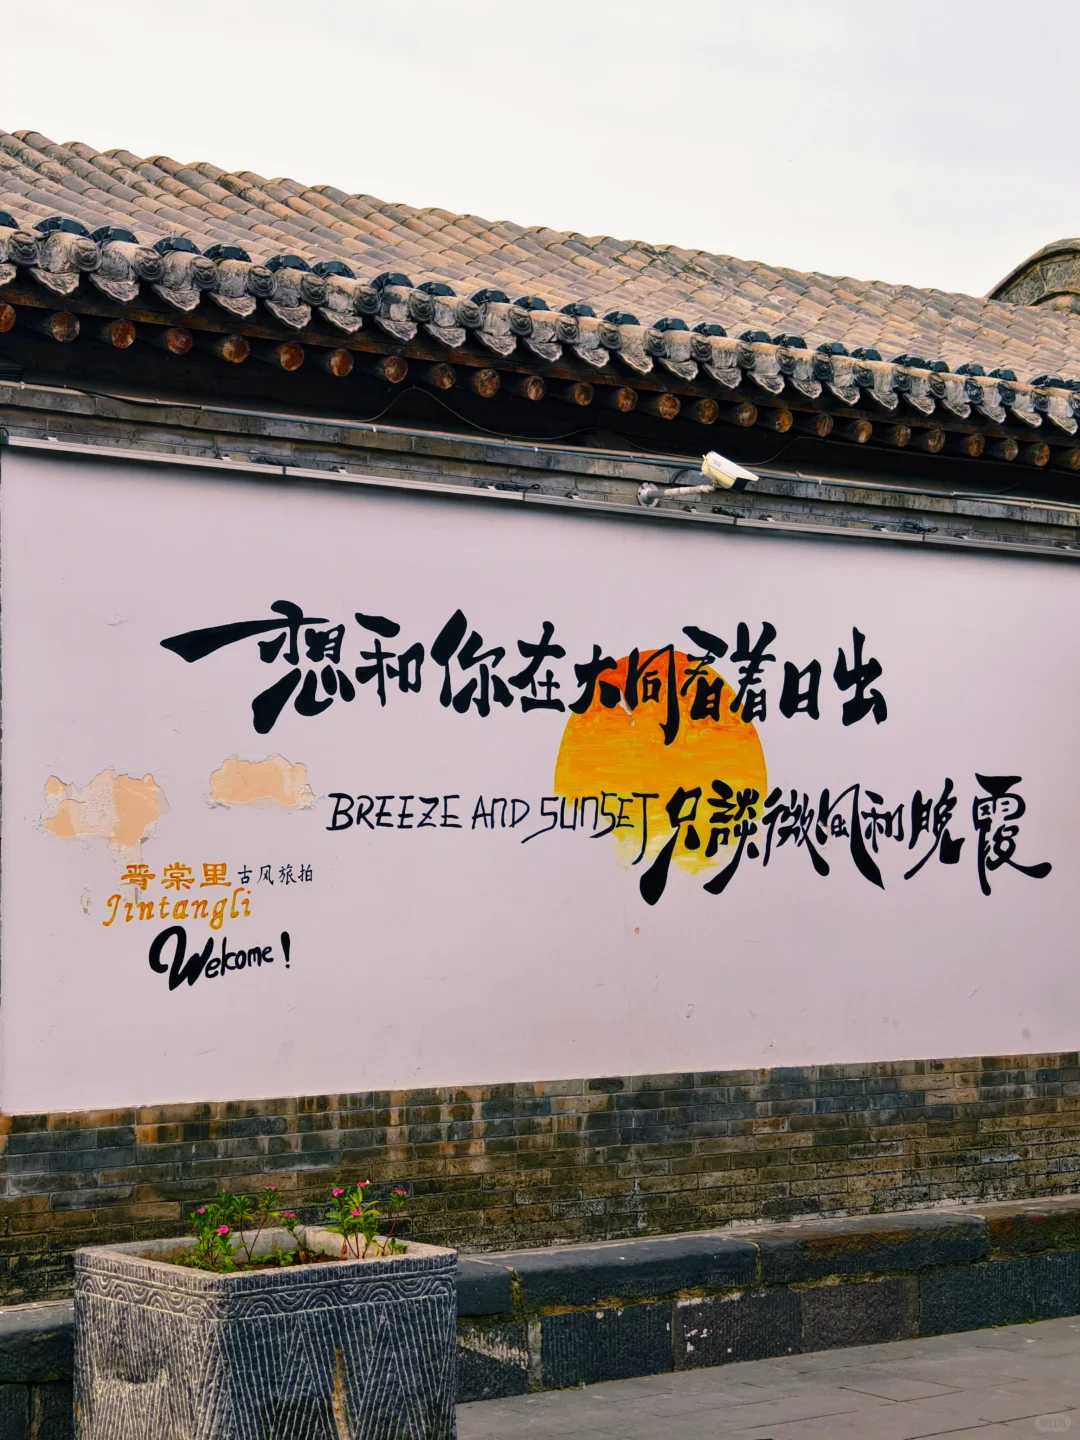 想和你在大同看着日出
BREEZE AND SUNSET 只談微风和晚霞
晋棠里 古风旅拍
Jintangli
Welcome!